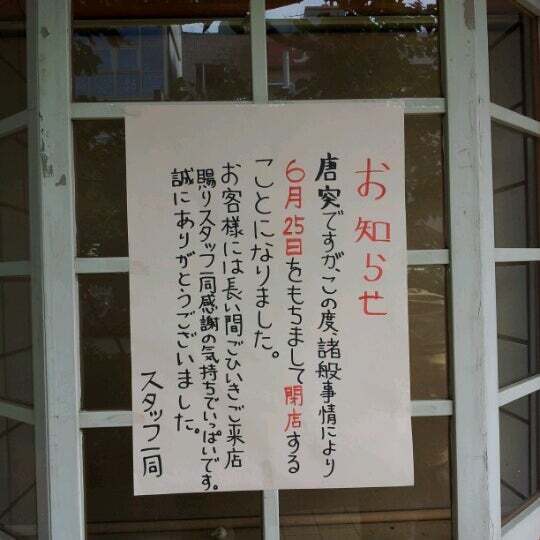 お知らせ
唐突ですが、この度、諸般事情により
6月25日をもちまして閉店する
ことになりました。
お客様には長い間ごひいきご来店
賜りスタッフ一同感謝の気持ちでいっぱいです。
誠にありがとうございました。
スタッフ一同